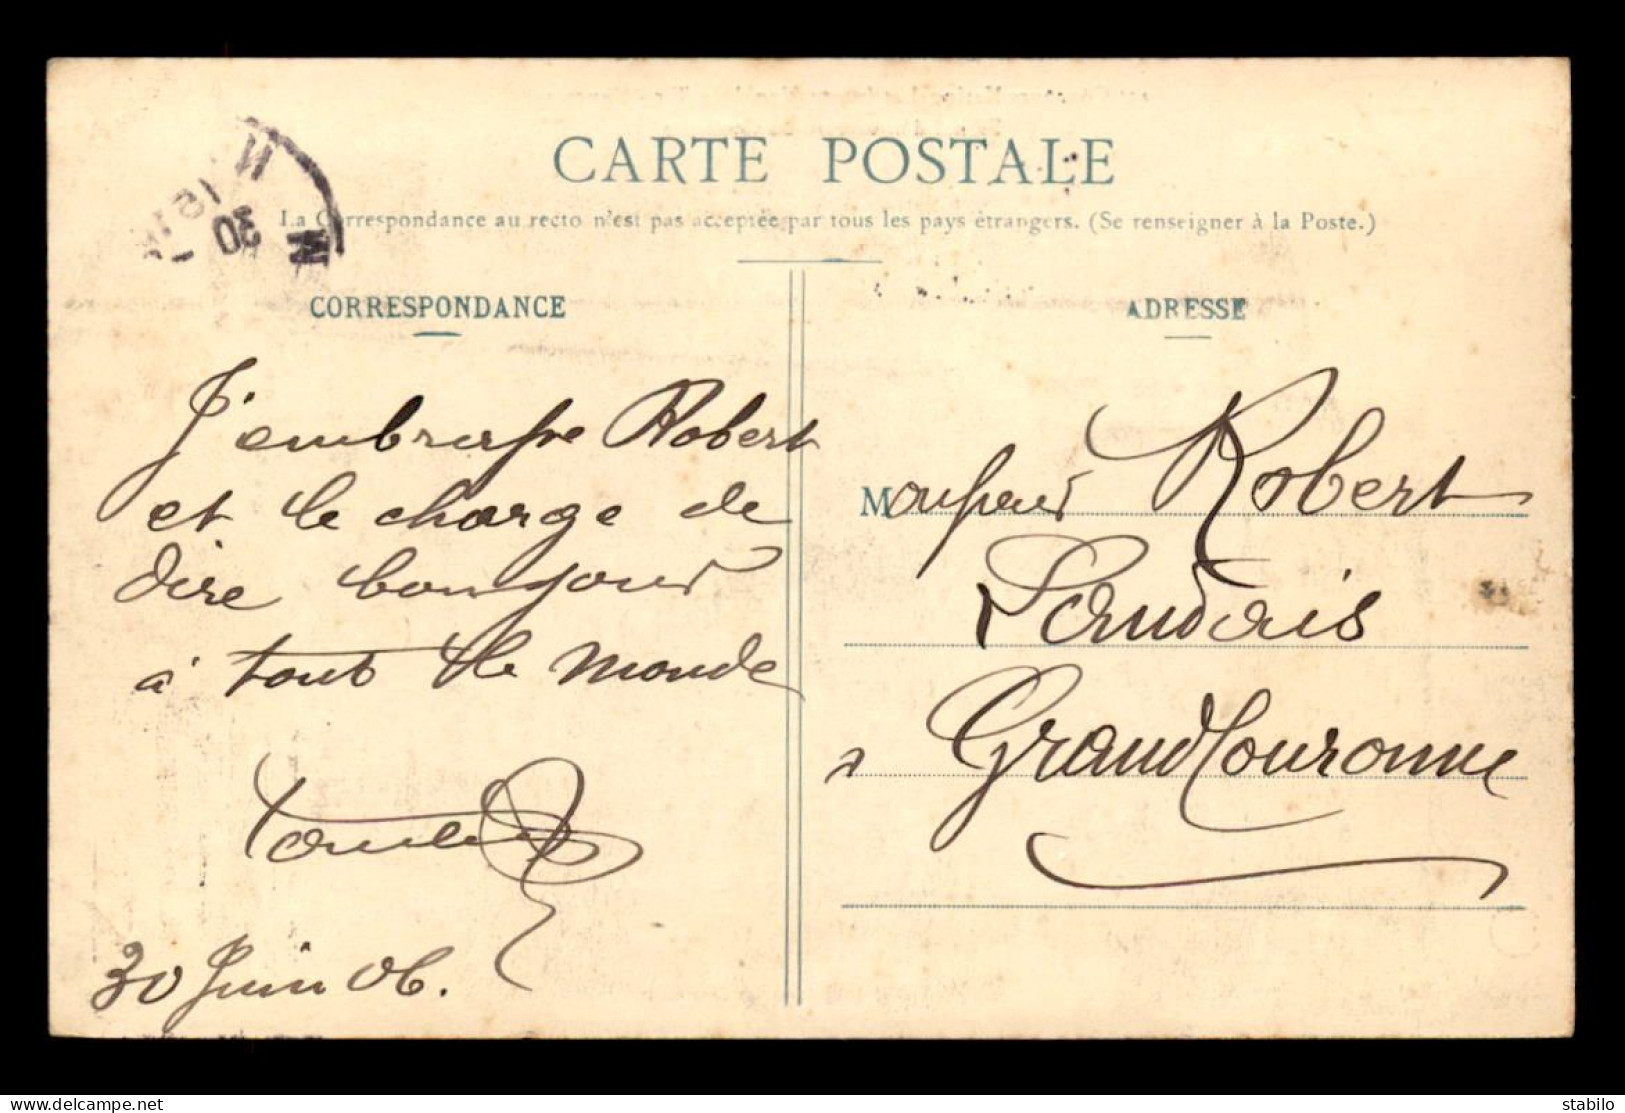 CARTE POSTALE
La Correspondance au recto n'est pas acceptée par tous les pays étrangers. (Se renseigner à la Poste.)
CORRESPONDANCE
J'embrasse Robert
et le charge de
dire bonjour
à tout le monde
30 Juin 06.
ADRESSE
Monsieur Robert
Landais
à Grand Couronne
30
www.delcampe.net
stabilo